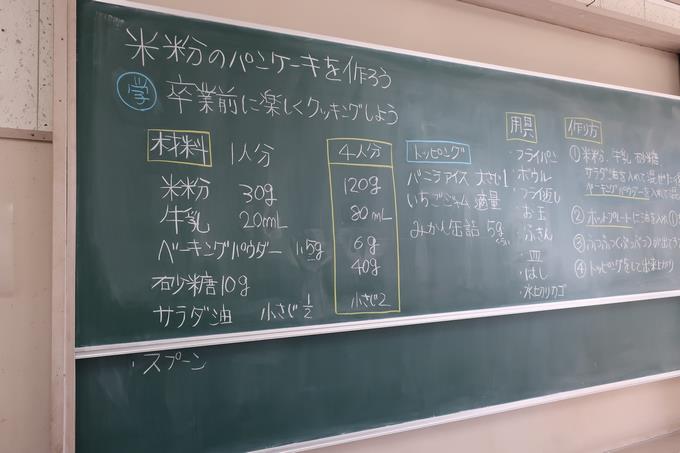 米粉のパンケーキを作ろう
学 卒業前に楽しくクッキングしよう
材料 1人分 4人分
米粉 30g 120g
牛乳 20mL 80mL
ベーキングパウダー 1.5g 6g
砂糖10g 40g
サラダ油 小さじ1/2 小さじ2
・スプーン
トッピング
バニラアイス 大さじ1
いちごジャム 適量
みかん缶詰 5gくらい
用具
・フライパン
・ボウル
・フライ返し
・お玉
・ふきん
・皿
・はし
・水切りカゴ
作り方
①米粉、牛乳、砂糖
サラダ油を入れて混ぜ
ベーキングパウダーを入れて混
②ホットプレートに油を入れ①
③ふつふつぷつぷつが出てき
④トッピングをして出来上がり